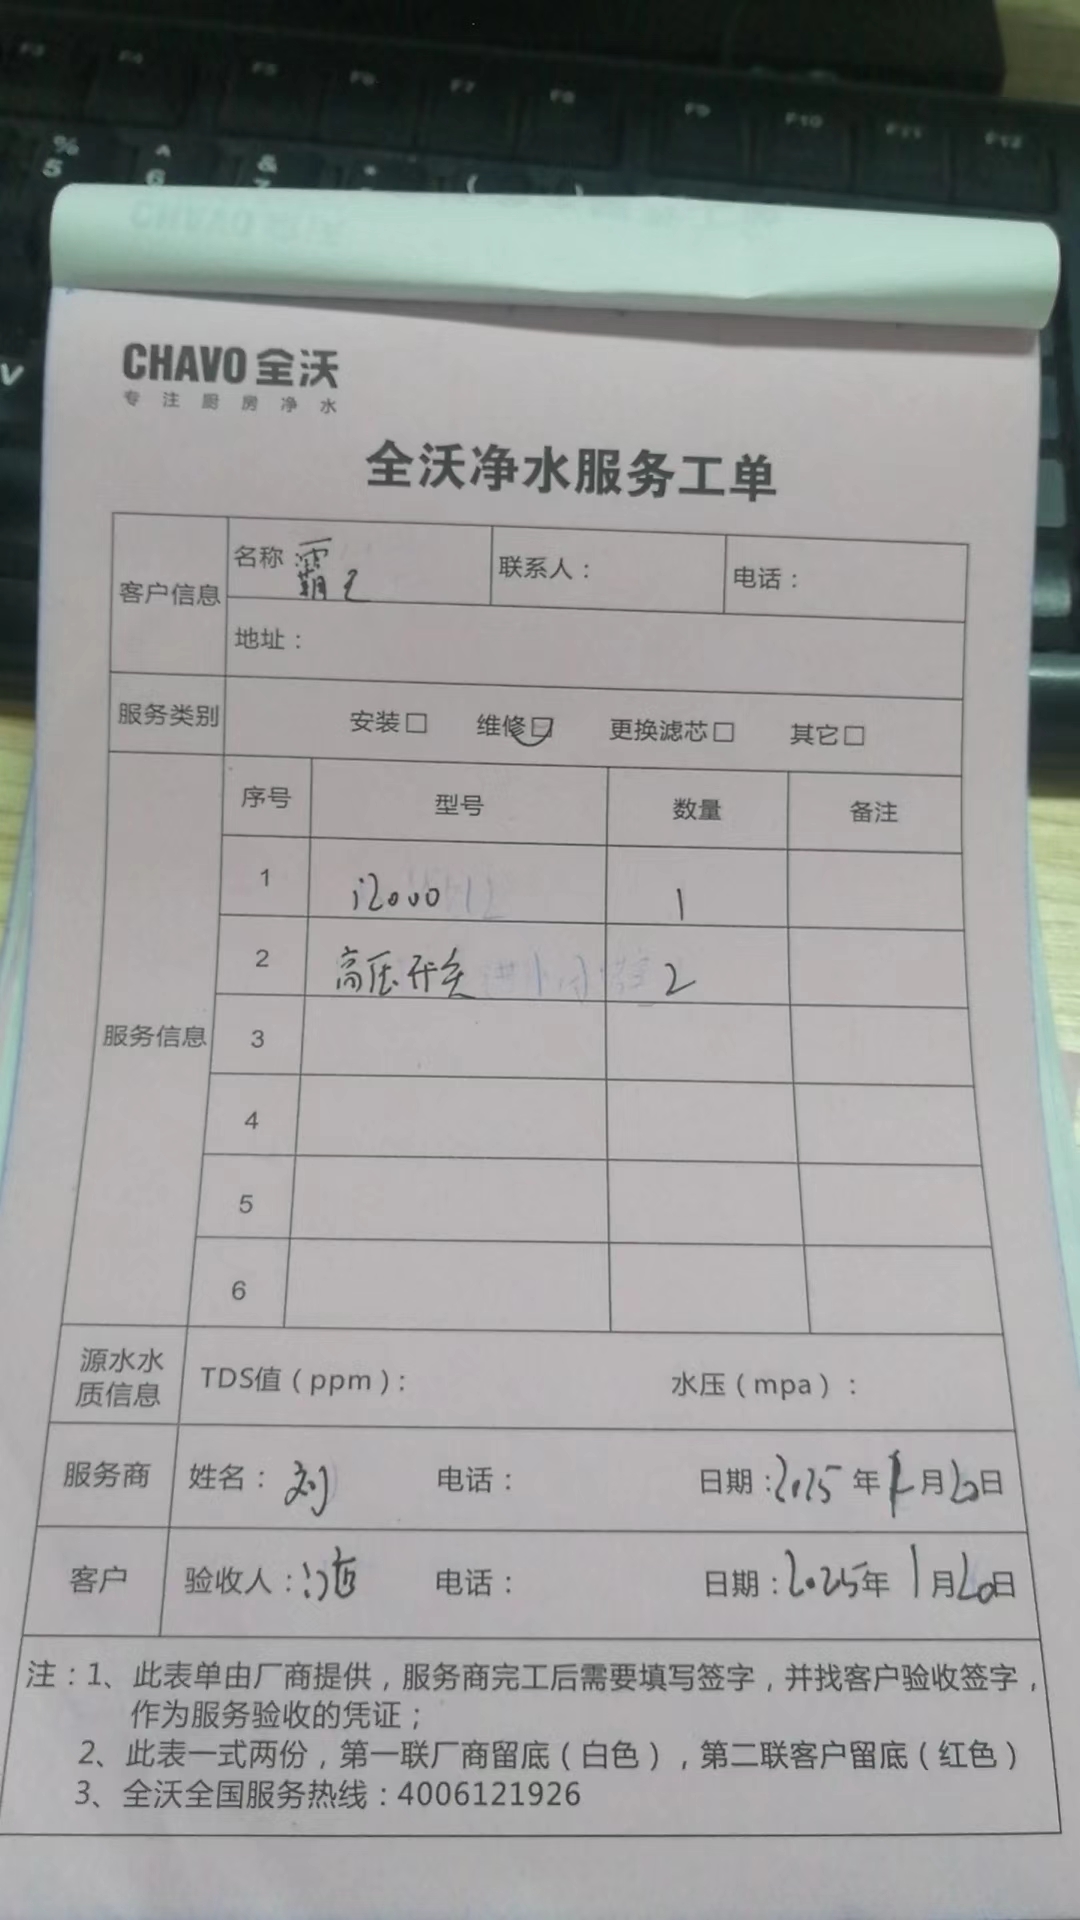 F3 F4 F5 F6 F7 F8 F9 F10 F11 F12
% ^ & * ( )
5 6 7
V
CHAVO 全沃
专注厨房净水
全沃净水服务工单
客户信息 名称 霸王 联系人： 电话：
地址：
服务类别 安装□ 维修□ 更换滤芯□ 其它□
服务信息 序号 型号 数量 备注
1 i2000 1
2 高压开关 2
3
4
5
6
源水水质信息 TDS值（ppm）： 水压（mpa）：
服务商 姓名：刘 电话： 日期：2025年1月20日
客户 验收人： 电话： 日期：2025年1月20日
注：1、此表单由厂商提供，服务商完工后需要填写签字，并找客户验收签字，
作为服务验收的凭证；
2、此表一式两份，第一联厂商留底（白色），第二联客户留底（红色）
3、全沃全国服务热线：4006121926